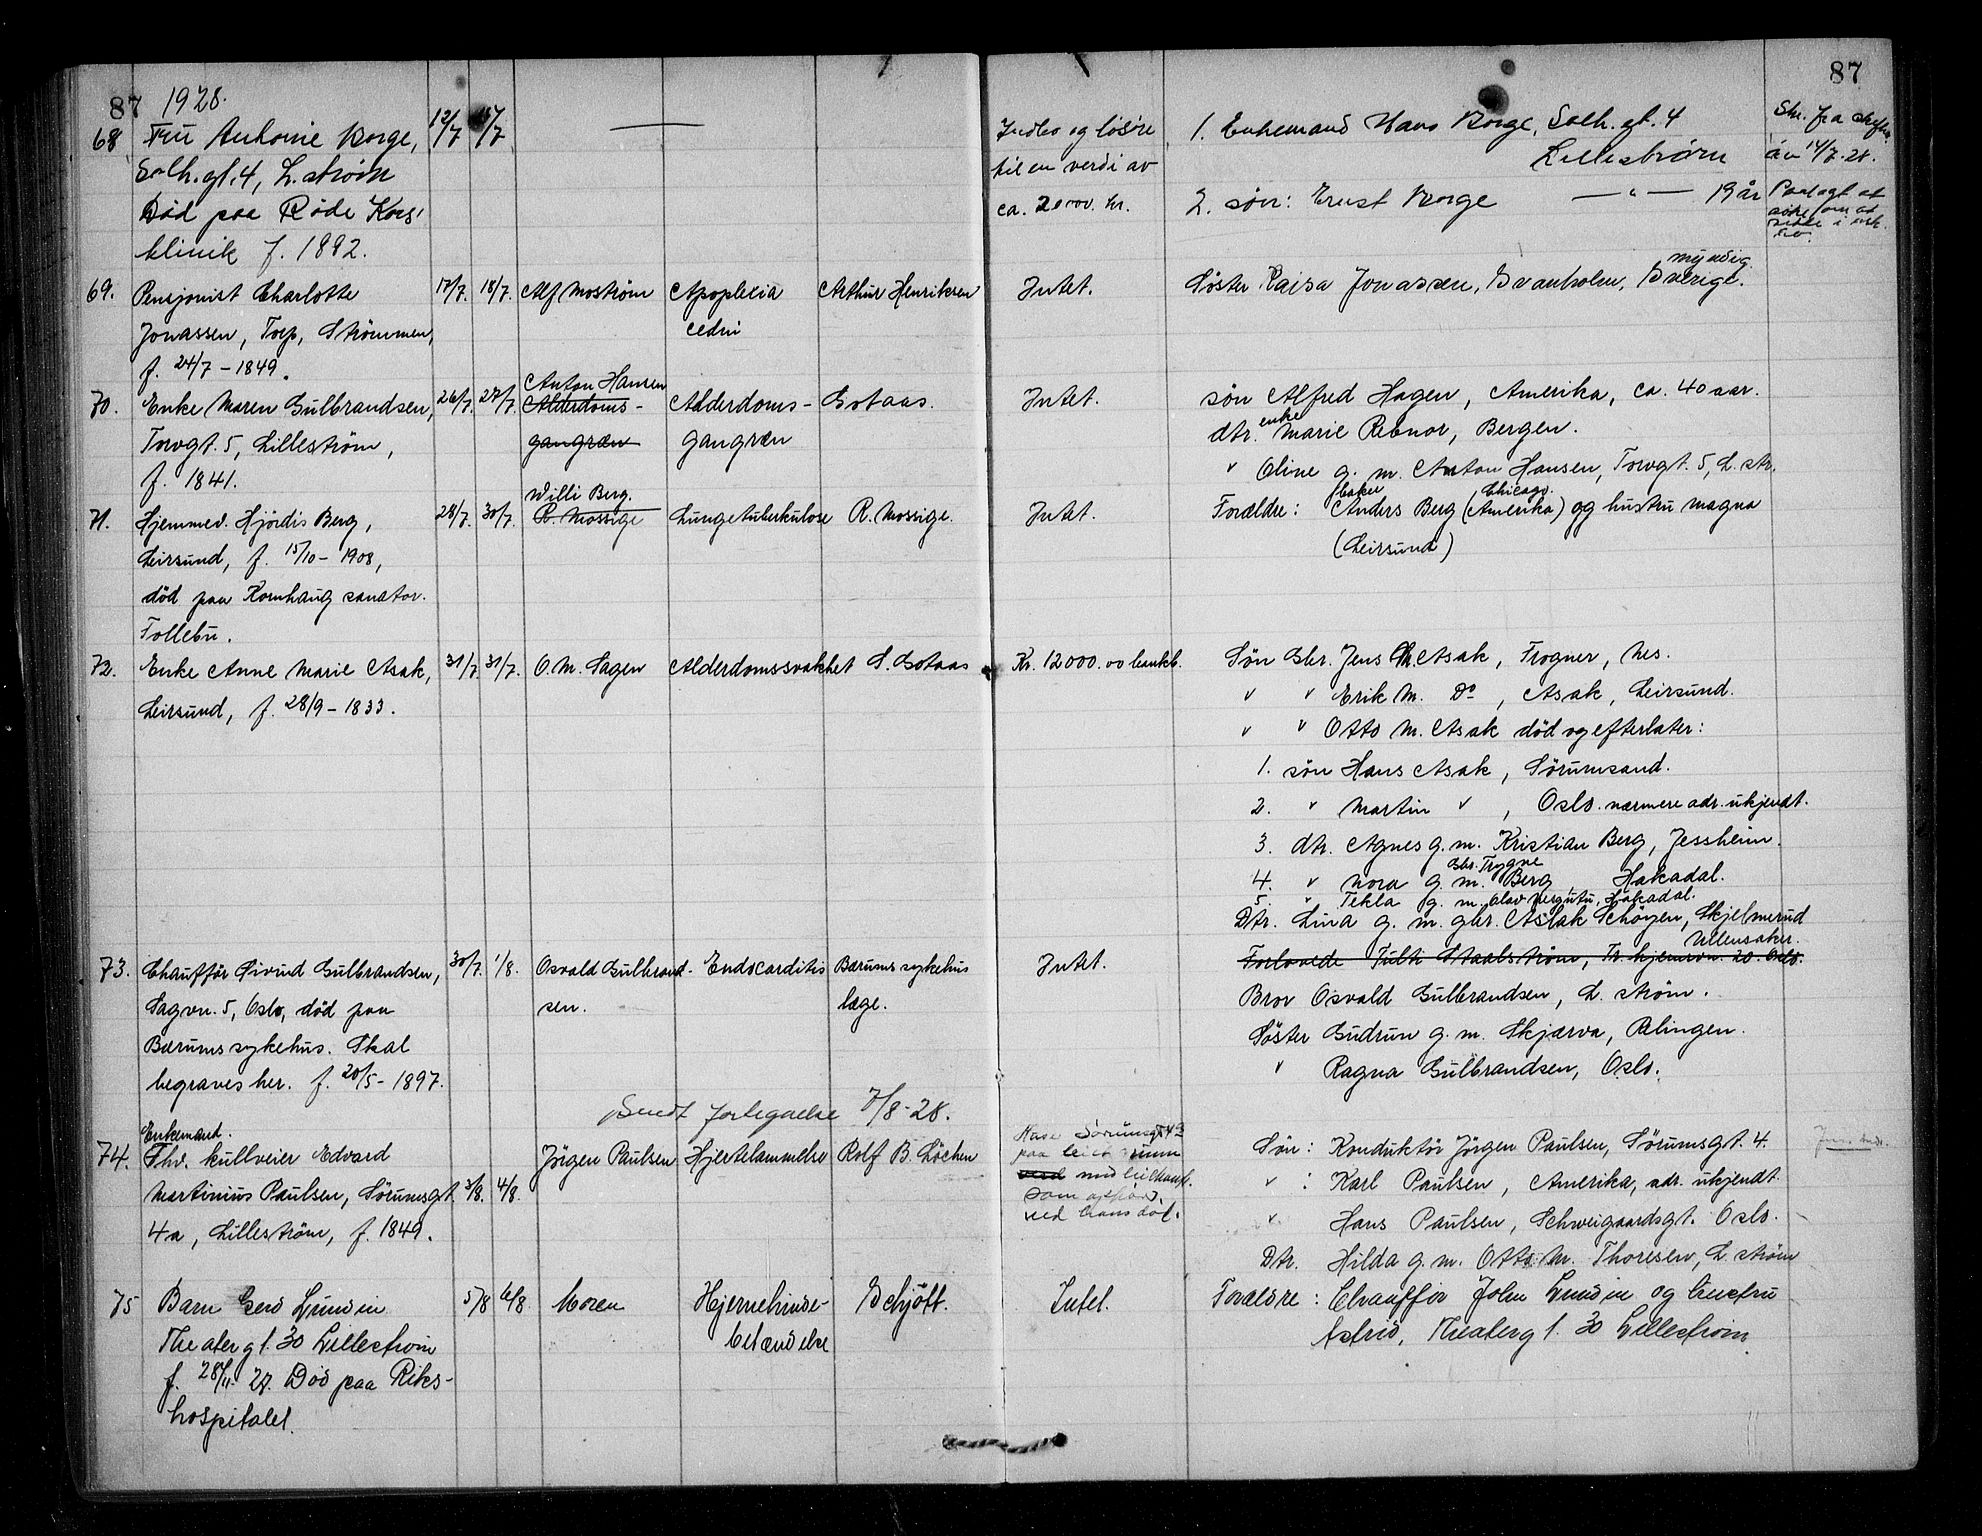 87 1928. 87
68 Fru Anthonie Borge, 12/7 15/7 — Indbo og løsøre 1. Enkemand Hans Borge, Solh. gt. 4 Skr. fra
Solh. gt. 4, L. strøm til en verdi av Lillestrøm av 14/7-28.
Død paa Røde Kors' ca. 2000 kr. 2. søn: Ernst Borge — " — 19 år
klinik f. 1892.
69. Pensjonist Charlotte 17/7. 18/7. Alf Moström Apoplexia Arthur Henriksen Intet. Søster Kaisa Jonassen, Svanholm, Sverige. myndig.
Jonassen, Torp, Strømmen, cedri
f. 24/7 - 1849.
70. Enke Maren Gulbrandsen, 26/7. 27/7. Anton Hansen Alderdoms- Alderdoms- Gotaas. Intet. søn Alfred Hagen, Amerika, ca. 40 aar.
Torvgt. 5, Lilleström, gangræn gangræn dtr. enke Marie Rebnor, Bergen.
f. 1841. " Oline g. m. Anton Hansen, Torvgt. 5, L. str.
71. Hjemmev. Hjördis Berg, 28/7. 30/7. Willi Berg. R. Mossige Lungetuberkulose R. Mossige. Intet. Forældre: baker Anders Berg (Chicago. Amerika) og hustru Magna
Leirsund, f. 15/10 - 1908, (Leirsund)
död paa Kornhaug sanator.
Follebu.
72. Enke Anne Marie Asak, 31/7. 31/7. O. M. Hagen Alderdomssvakhet S. Gotaas Kr. 12000.00 bankb. Søn Gbr. Jens M. Asak, Frogner, Nes.
Leirsund, f. 28/9 - 1833. " " Erik M. Do , Asak, Leirsund.
" " Otto M. Asak död og efterlater:
1. søn Hans Asak, Sörumsand.
2. " Martin " , Oslo. nærmere adr. ukjendt.
3. dtr. Agnes g. m. Kristian Berg, Jessheim.
4. " Nora g. m. Gbr. Trygve Berg Hakadal.
5. " Tekla g. m. Olav Hakadal.
Dtr. Lina g. m. gbr. Aslak Schöyen, Skjelmerud
Ullensaker.
73. Chaufför Öivind Gulbrandsen, 30/7. 1/8. Osvald Gulbrand- Endocarditis Bærums sykehus Intet. Forlovede Tulli Staalström, Tr. hjemsvn. 20. Oslo.
Sagvn. 5, Oslo, död paa sen. læge. Bror Osvald Gulbrandsen, L. ström.
Bærums sykehus. Skal Söster Gudrun g. m. Skjærva, Rælingen.
begraves her. f. 20/5 - 1897. " Ragna Gulbrandsen, Oslo.
Sendt forlegnelse 7/8-28.
Enkemand.
74. Fhv. kullveier Edvard Jörgen Paulsen Hjertelammelse Rolf B. Löchen Søn: Konduktör Jörgen Paulsen, Sörumsgt. 4.
Martinius Paulsen, Sörumsgt. 3/8. 4/8. " : Karl Paulsen, Amerika, adr. ukjendt.
4a, Lilleström, f. 1849. ved hans död. " Hans Paulsen, Schweigaardsgt. Oslo.
Dtr. Hilda g. m. Otto M. Thoresen, L. ström
75 Barn Gerd Lundin 5/8 6/8. Moren Hjernehinde- Schjött. Intet. Forældre: Chauffør John Lundin og hustru
Theatergt. 30 Lillestrøm betændelse Astrid, Theatergt. 30 Lillestrøm
f. 28/11 27. Død paa Riks-
hospitalet.